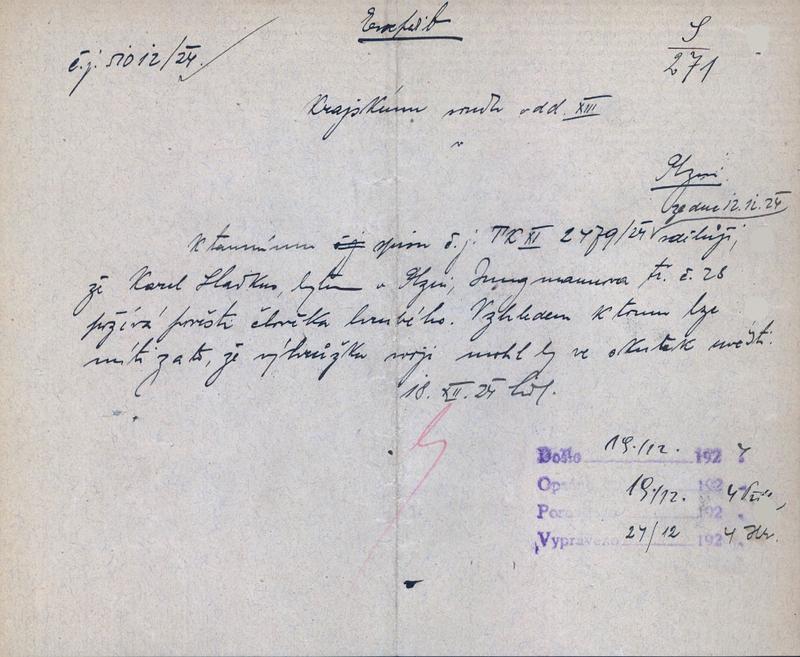 č.j. 51012/24.
S
271
Krajskému soudu odd. XIII
v
Plzni.
ze dne 12.12.24
K tamnímu spisu č.j. TK XI 2479/24 sděluji,
že Karel Sladkus, bytem v Plzni, Jungmannova tř. č. 28
požívá pověsti člověka hrubého. Vzhledem k tomu lze
míti za to, že výhrůžku svoji mohl by ve skutek uvésti.
18. XII. 24
Došlo 19./12. 192 4
19./12. 192 4
192
Vypraveno 27/12 192 4